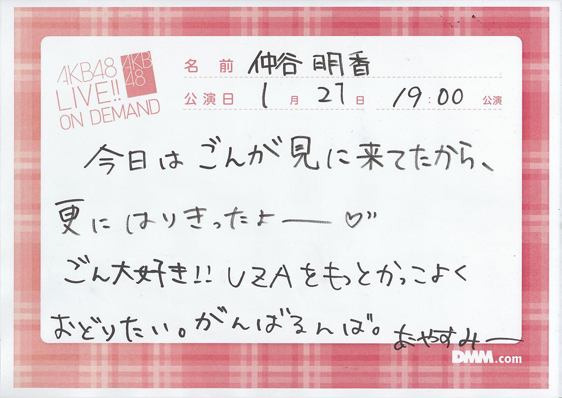 AKB48
LIVE!!
ON DEMAND
AKB
48
名前 仲谷明香
公演日 1月27日 19:00 公演
今日は ごんが 見に来てたから、
更に はりきったよー♡〃
ごん大好き!! UZAをもっとかっこよく
おどりたい。がんばるんば。おやすみー
DMM.com